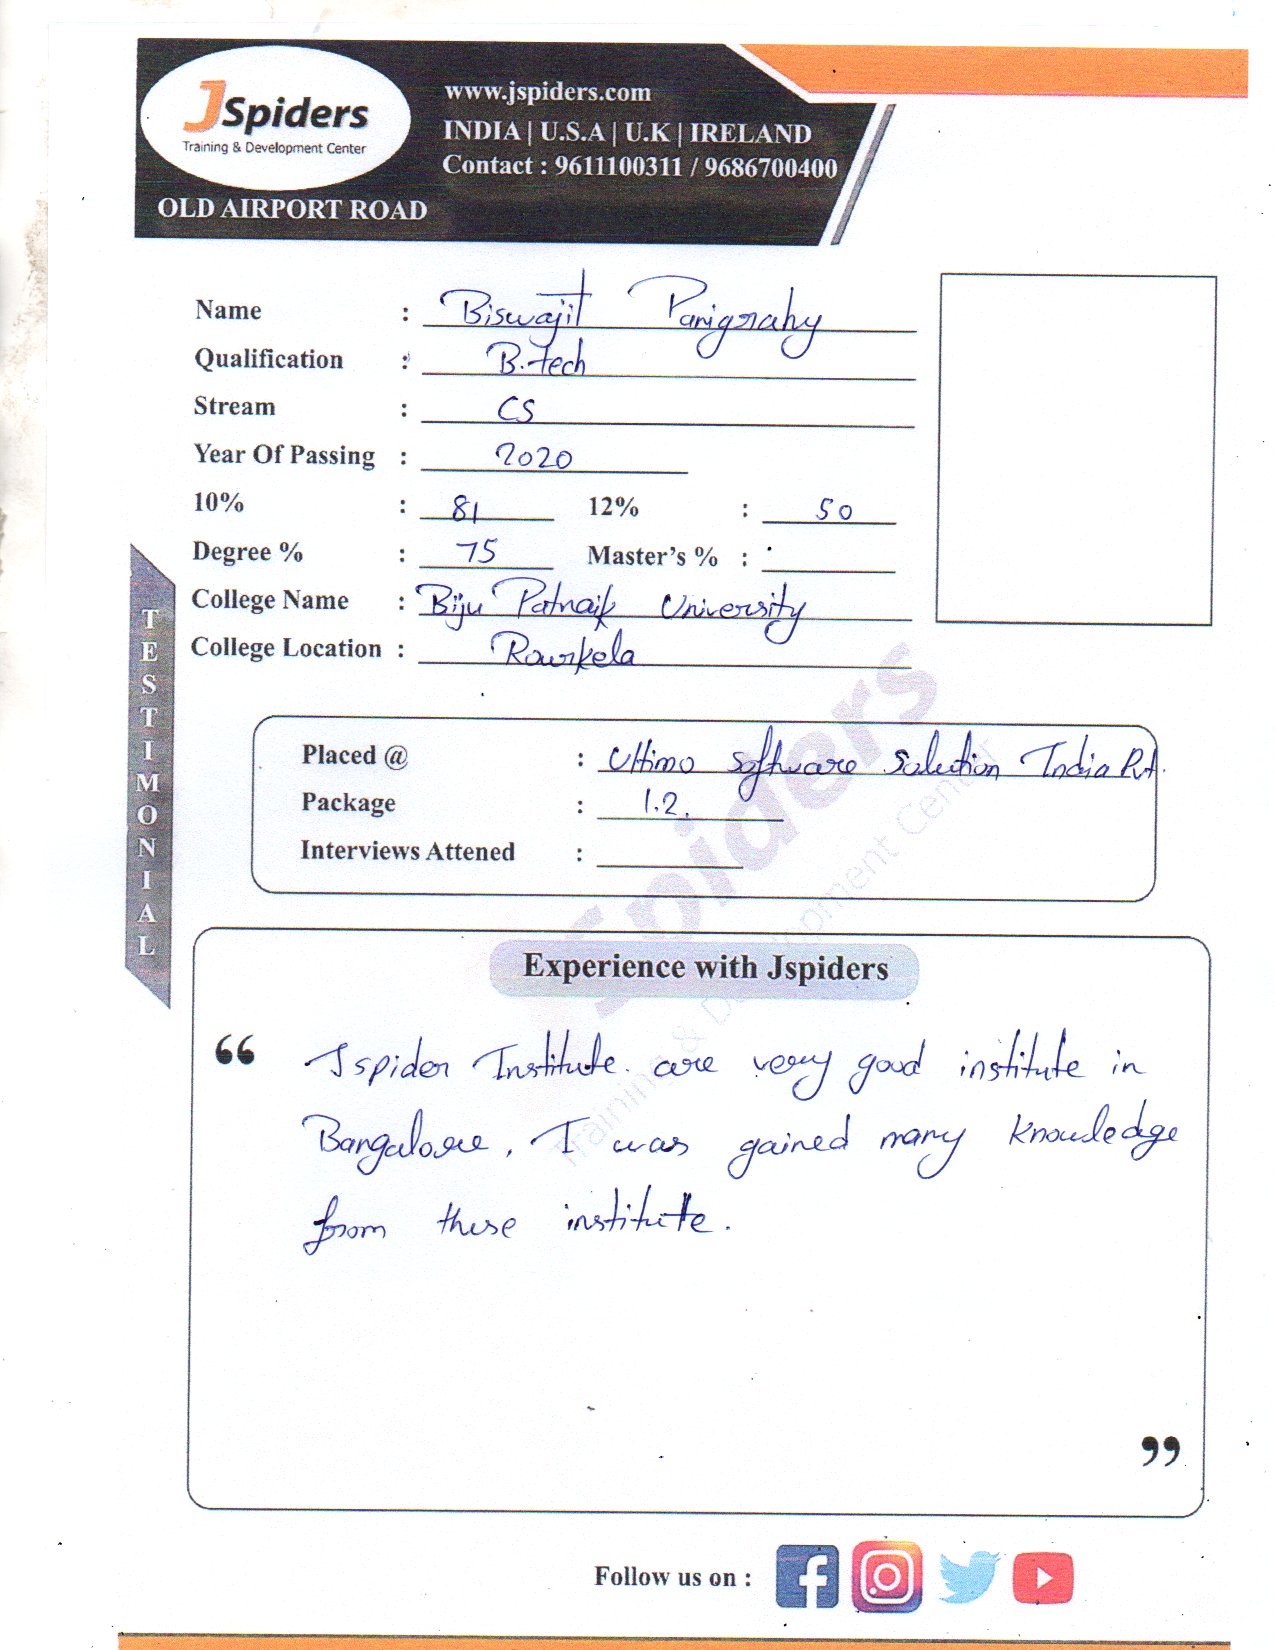 JSpiders
Training & Development Center
OLD AIRPORT ROAD
www.jspiders.com
INDIA | U.S.A | U.K | IRELAND
Contact : 9611100311 / 9686700400
Name : Biswajit Panigrahy
Qualification : B.tech
Stream : CS
Year Of Passing : 2020
10% : 81 12% : 50
Degree % : 75 Master's % :
College Name : Biju Patnaik University
College Location : Rourkela
TESTIMONIAL
Placed @ : Ultimo Software Solution India Pvt.
Package : 1.2.
Interviews Attened :
Spiders
Training & Development Center
Experience with Jspiders
“ Jspider Institute. are very good institute in
Bangalore, I was gained many knowledge
from these institute.
”
Follow us on :